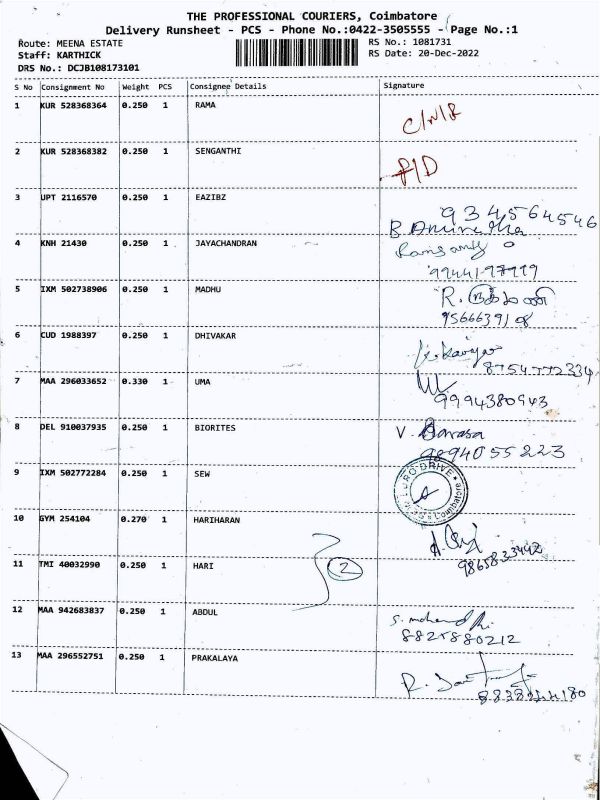 THE PROFESSIONAL COURIERS, Coimbatore
Delivery Runsheet - PCS - Phone No.:0422-3505555 - Page No.:1
Route: MEENA ESTATE
RS No.: 1081731
Staff: KARTHICK
RS Date: 20-Dec-2022
DRS No.: DCJB108173101
S No Consignment No Weight PCS Consignee Details Signature
1 KUR 528368364 0.250 1 RAMA C/N/R
2 KUR 528368382 0.250 1 SENGANTHI P/D
3 UPT 2116570 0.250 1 EAZIBZ 934564546
B.
4 KNH 21430 0.250 1 JAYACHANDRAN
5 IXM 502738906 0.250 1 MADHU R.
6 CUD 1988397 0.250 1 DHIVAKAR
8754772334
7 MAA 296033652 0.330 1 UMA
9994380943
8 DEL 910037935 0.250 1 BIORITES V.
9894055223
9 IXM 502772284 0.250 1 SEW
EURO DRIVE
Coimbatore
10 GYM 254104 0.270 1 HARIHARAN
9865833442
11 TMI 40032990 0.250 1 HARI 2
12 MAA 942683837 0.250 1 ABDUL
8825880212
13 MAA 296552751 0.250 1 PRAKALAYA R.